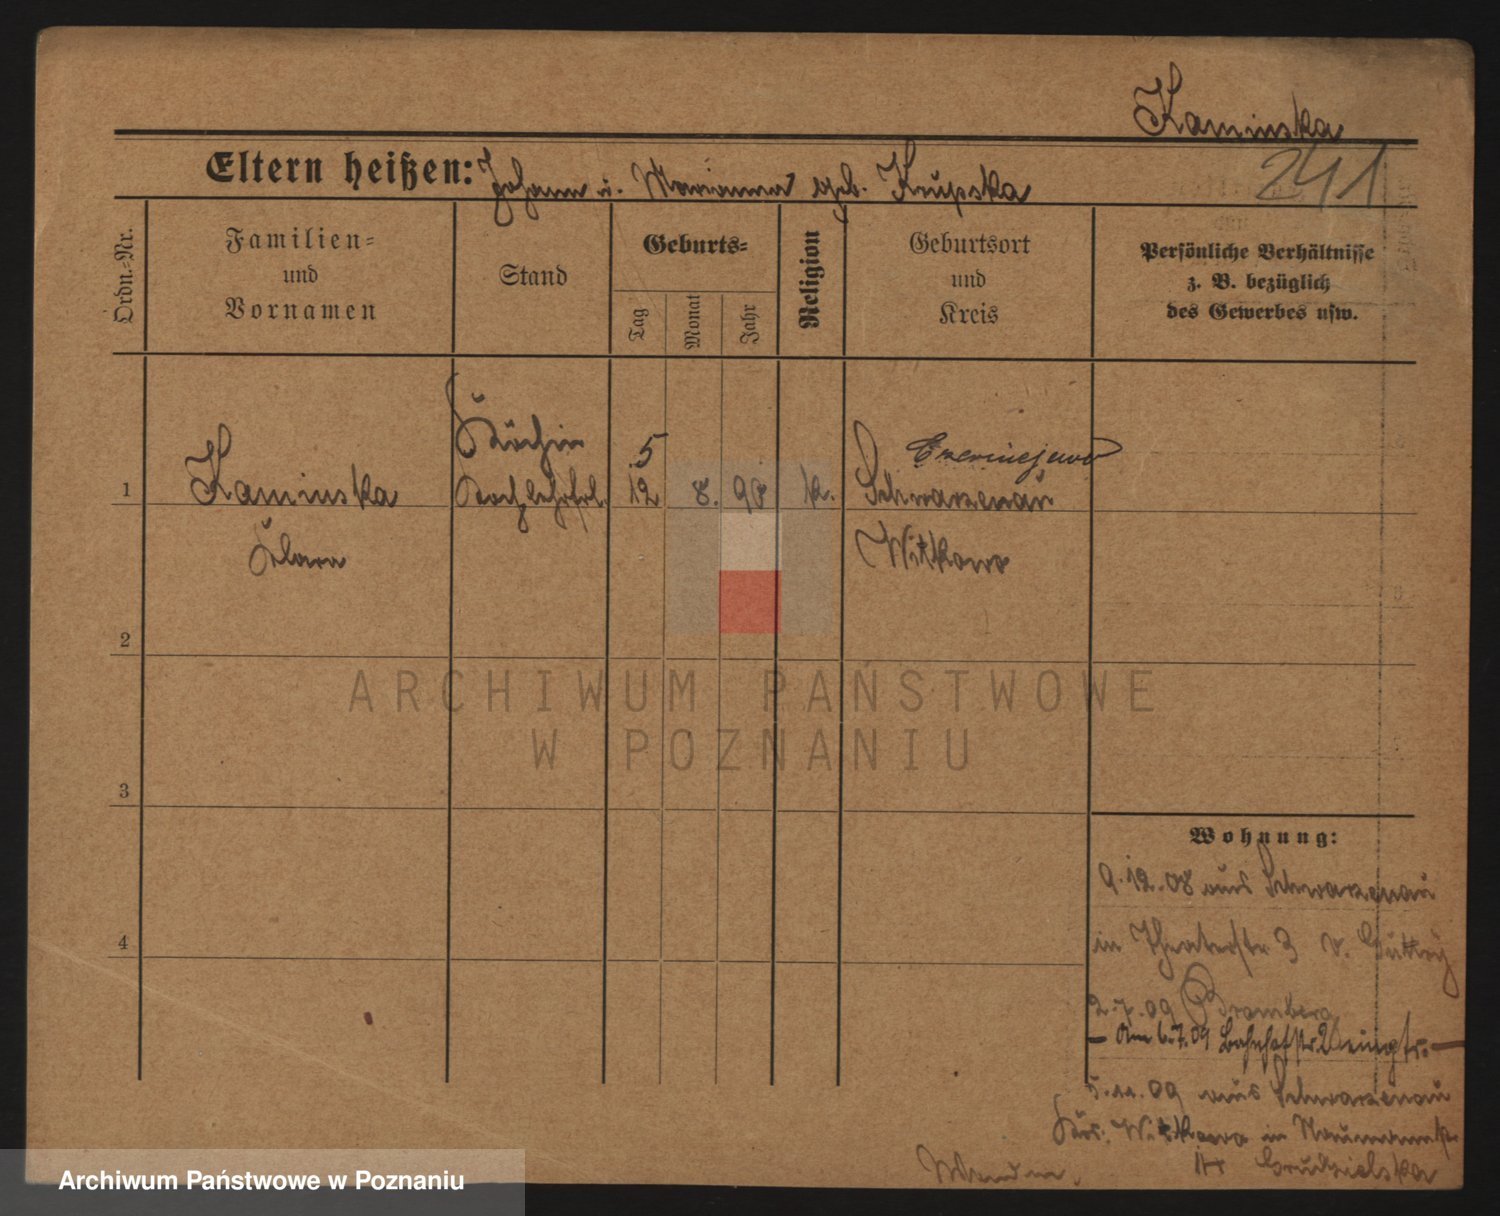 Kaminska
241
Eltern heißen: Johann u. Marianna geb. Krupska
Ordn.-Nr.
Familien-
und
Vornamen
Stand
Geburts-
Tag
Monat
Jahr
Religion
Geburtsort
und
Kreis
Persönliche Verhältnisse
z. B. bezüglich
des Gewerbes usw.
Köchin
5
Czerniejewo
1 Kaminska Kochlehrfrl. 12 8. 90 k. Schwarzenau
Klara
Witkowo
2
3
4
Wohnung:
9.12.08 aus Schwarzenau
in Theaterstr 3 v.
2.7.09 Bromberg
– Am 6.7.09 Bahnhofstr. eingtr. –
5.11.09 aus Schwarzenau
Krs. Witkowo in
ARCHIWUM PAŃSTWOWE
W POZNANIU
Archiwum Państwowe w Poznaniu